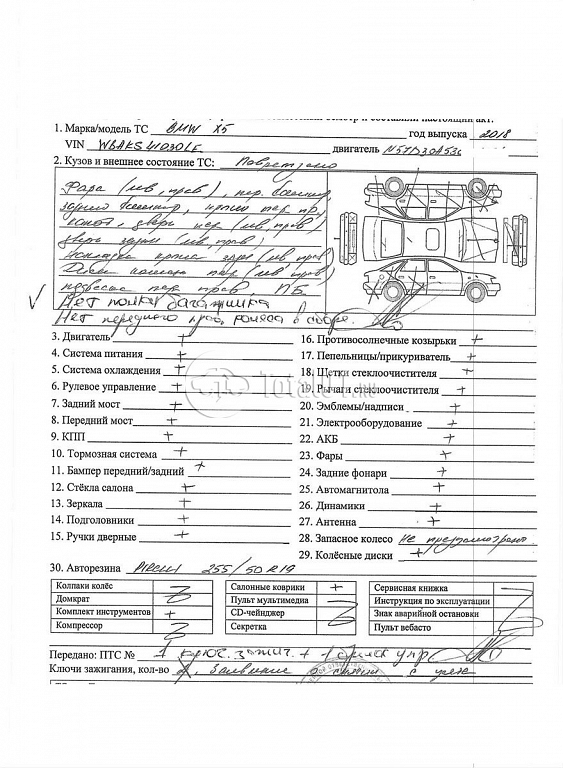 1. Марка/модель ТС BMW X5 год выпуска 2018
VIN двигатель N57D30A
2. Кузов и внешнее состояние ТС: Повреждено
Фара (лев, прав), пер. бампер,
задний бампер, крыло пер пр,
капот, дверь пер (лев, прав)
дверь задн (лев, прав)
Накладка крыла задн (лев, прав)
подвеска пер прав ПБ
Нет полки багажника
Нет переднего прав, колеса в сборе.
3. Двигатель +
4. Система питания +
5. Система охлаждения +
6. Рулевое управление +
7. Задний мост +
8. Передний мост +
9. КПП +
10. Тормозная система +
11. Бампер передний/задний +
12. Стёкла салона +
13. Зеркала +
14. Подголовники +
15. Ручки дверные +
16. Противосолнечные козырьки +
17. Пепельницы/прикуриватель +
18. Щетки стеклоочистителя +
19. Рычаги стеклоочистителя +
20. Эмблемы/надписи +
21. Электрооборудование +
22. АКБ +
23. Фары +
24. Задние фонари +
25. Автомагнитола +
26. Динамики +
27. Антенна +
28. Запасное колесо не предусмотрено
29. Колёсные диски +
Total01.ru
30. Авторезина PIRELLI 255/50 R19
Колпаки колёс
Домкрат
Комплект инструментов +
Компрессор
Салонные коврики +
Пульт мультимедиа
CD-чейнджер
Секретка
Сервисная книжка
Инструкция по эксплуатации
Знак аварийной остановки
Пульт вебасто
Передано: ПТС № 1 ключ. зажиг. +
Ключи зажигания, кол-во